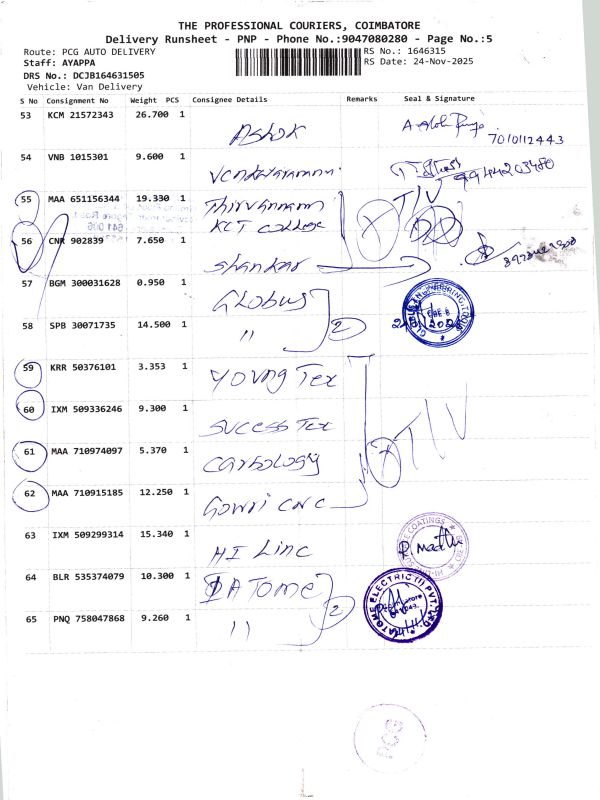 THE PROFESSIONAL COURIERS, COIMBATORE
Delivery Runsheet - PNP - Phone No.:9047080280 - Page No.:5
Route: PCG AUTO DELIVERY
RS No.: 1646315
Staff: AYAPPA
RS Date: 24-Nov-2025
DRS No.: DCJB164631505
Vehicle: Van Delivery
S No Consignment No Weight PCS Consignee Details Remarks Seal & Signature
53 KCM 21572343 26.700 1
Ashok
7010112443
54 VNB 1015301 9.600 1
9944203480
55 MAA 651156344 19.330 1
KCT College
TIV
56 CNR 902839 7.650 1
Shankar
57 BGM 300031628 0.950 1
Globus
58 SPB 30071735 14.500 1
"
2
59 KRR 50376101 3.353 1
Young Tex
60 IXM 509336246 9.300 1
Sucess Tex
TIV
61 MAA 710974097 5.370 1
Carbology
62 MAA 710915185 12.250 1
Gowri CNC
63 IXM 509299314 15.340 1
HI Linc
64 BLR 535374079 10.300 1
DATOME
2
65 PNQ 758047868 9.260 1
"
PCG